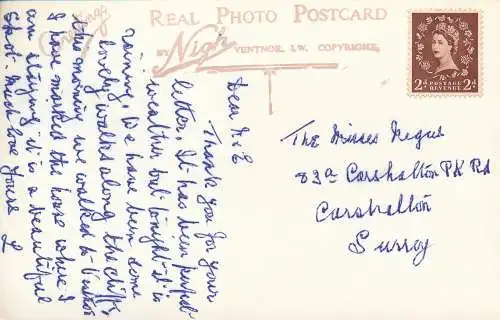 REAL PHOTO POSTCARD
BY Nigh VENTNOR, I.W. COPYRIGHT.
POSTAGE REVENUE
2D 2D
Dear M & E
Thank you for your
letter. It has been perfect
weather but tonight it is
raining. We have been some
lovely walks along the cliffs
this morning we walked to Ventnor
I have marked the house where I
am staying it is a beautiful
spot. Much love
Yours L
The Misses Megus
83a Carshalton PK Rd
Carshalton
Surrey